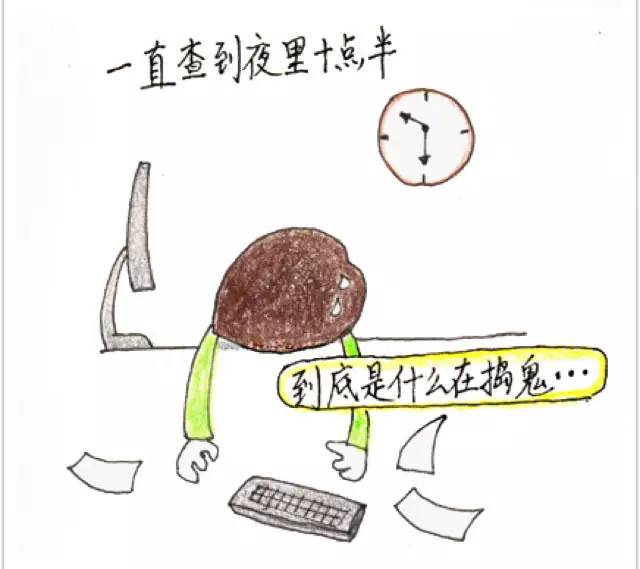 一直查到夜里十点半
到底是什么在捣鬼…